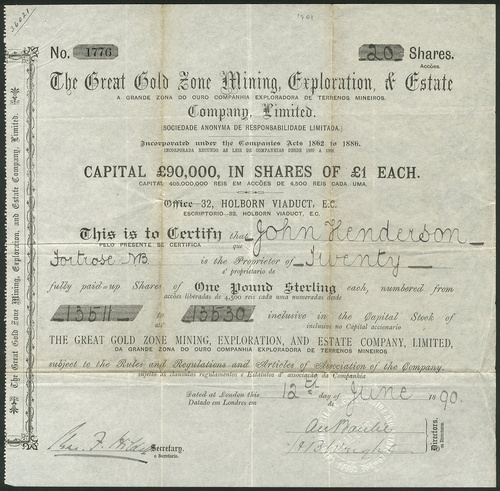 36021
No. 1776
20 Shares.
Accões.
The Great Gold Zone Mining, Exploration, & Estate
A GRANDE ZONA DO OURO COMPANHIA EXPLORADORA DE TERRENOS MINEIROS.
Company, Limited.
(SOCIEDADE ANONYMA DE RESPONSABILIDADE LIMITADA.)
Incorporated under the Companies Acts 1862 to 1886.
INCORPORADA SEGUNDO AS LEIS DE COMPANHIAS DESDE 1862 A 1886.
CAPITAL £90,000, IN SHARES OF £1 EACH.
CAPITAL 405,000,000 REIS EM ACCÕES DE 4,500 REIS CADA UMA.
Office—32, HOLBORN VIADUCT, E.C.
ESCRIPTORIO—32, HOLBORN VIADUCT, E.C.
This is to Certify that John Henderson
PELO PRESENTE SE CERTIFICA que
Fortrose NB is the Proprietor of Twenty
é proprietario de
fully paid-up Shares of One Pound Sterling each, numbered from
accões liberadas de 4,500 reis cada uma numeradas desde
13511 to 13530 inclusive in the Capital Stock of
até inclusivo no Capital accionario
THE GREAT GOLD ZONE MINING, EXPLORATION, AND ESTATE COMPANY, LIMITED,
DA GRANDE ZONA DO OURO COMPANHIA EXPLORADORA DE TERRENOS MINEIROS
subject to the Rules and Regulations and Articles of Association of the Company.
Dated at London this 12th day of June 1890.
Datado em Londres em
Secretary.
o Secretario.
Directors.
The Great Gold Zone Mining, Exploration, and Estate Company, Limited.